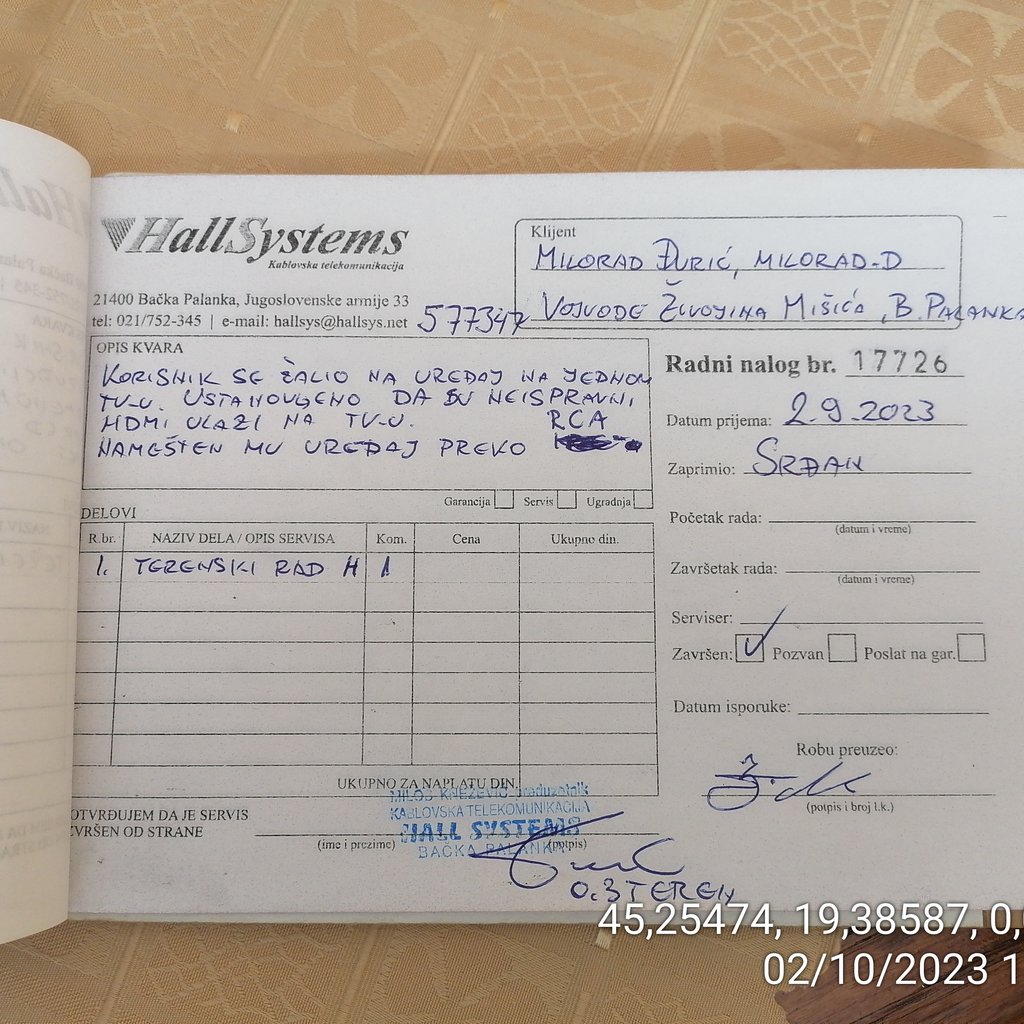 HallSystems
Kablovska telekomunikacija
21400 Bačka Palanka, Jugoslovenske armije 33
tel: 021/752-345 | e-mail: hallsys@hallsys.net
577347
Klijent
MILORAD ĐURIĆ, MILORAD-D
VOJVODE ŽIVOJINA MIŠIĆA, B. PALANKA
OPIS KVARA
KORISNIK SE ŽALIO NA UREĐAJ NA JEDNOM
TV-U. USTANOVLJENO DA SU NEISPRAVNI
HDMI ULAZI NA TV-U.
NAMEŠTEN MU UREĐAJ PREKO RCA
Garancija Servis Ugradnja
Radni nalog br. 17726
Datum prijema: 2.9.2023
Zaprimio: SRĐAN
Početak rada:
(datum i vreme)
Završetak rada:
(datum i vreme)
Serviser:
Završen: Pozvan Poslat na gar.
Datum isporuke:
Robu preuzeo:
(potpis i broj l.k.)
DELOVI
R.br. NAZIV DELA / OPIS SERVISA Kom. Cena Ukupno din.
1. TERENSKI RAD H 1
UKUPNO ZA NAPLATU DIN.
OTVRĐUJEM DA JE SERVIS
ZVRŠEN OD STRANE
(ime i prezime) (potpis)
MILOŠ KNEŽEVIĆ preduzetnik
KABLOVSKA TELEKOMUNIKACIJA
HALL SYSTEMS
BAČKA PALANKA
0.3 TEREN
45,25474, 19,38587, 0,
02/10/2023 1